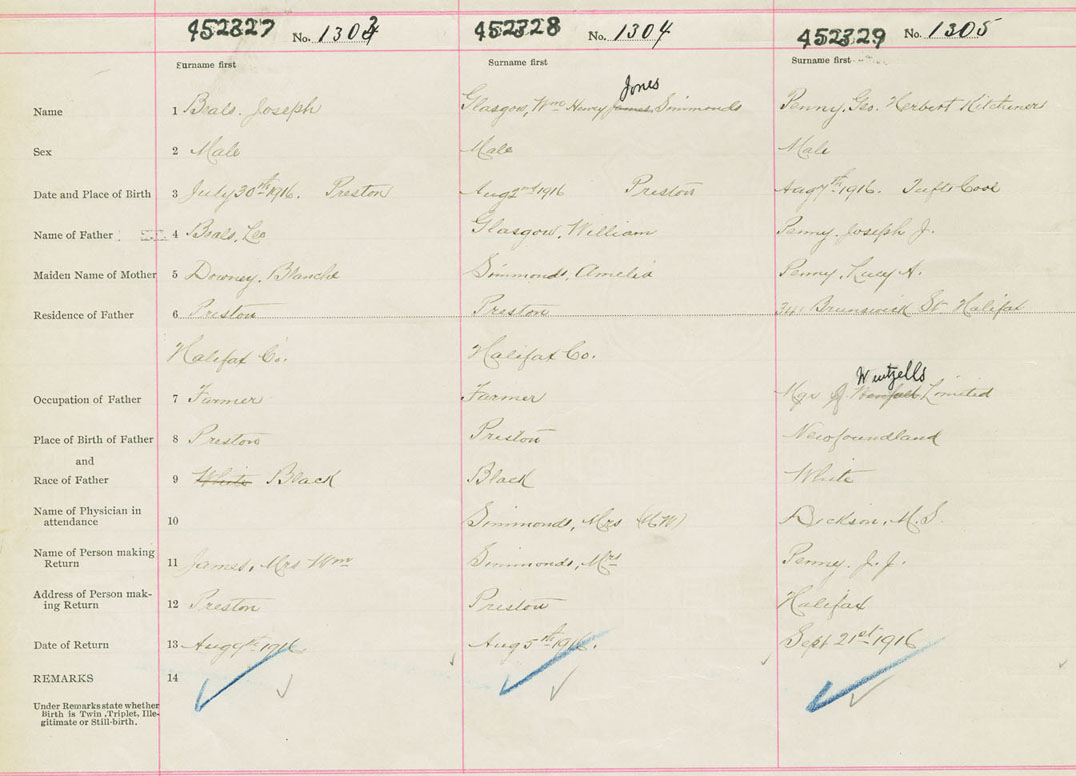 452327 No. 1303 452328 No. 1304 452329 No. 1305
Surname first Surname first Surname first
Jones
Name 1 Beals, Joseph Glasgow, Wm Henry James Simmonds Penny, Geo. Herbert Kitchener
Sex 2 Male Male Male
Date and Place of Birth 3 July 30th 1916. Preston Aug 2nd 1916 Preston Aug 7th 1916. Tufts Cove
Name of Father 4 Beals, Leo Glasgow, William Penny, Joseph J.
Maiden Name of Mother 5 Downey, Blanche Simmonds, Amelia Penny, Lucy A.
Residence of Father 6 Preston Preston Brunswick St Halifax
Halifax Co. Halifax Co.
Wentzells
Occupation of Father 7 Farmer Farmer Mgr of Limited
Place of Birth of Father 8 Preston Preston Newfoundland
and
Race of Father 9 White Black Black White
Name of Physician in
attendance 10 Simmonds, Mrs (M W) Dickson, M. S.
Name of Person making
Return 11 James, Mrs Wm Simmonds, Mrs Penny, J. J.
Address of Person mak-
ing Return 12 Preston Preston Halifax
Date of Return 13 Aug 9th 1916 Aug 5th 1916. Sept 21st 1916
REMARKS 14
Under Remarks state whether
Birth is Twin, Triplet, Ille-
gitimate or Still-birth.